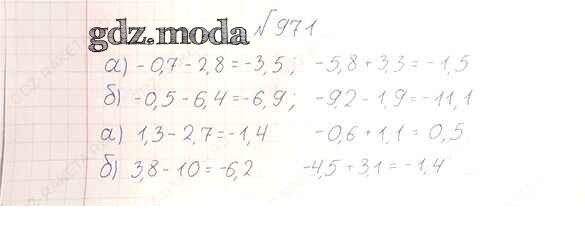 gdz.moda №971
а) -0,7 - 2,8 = -3,5; -5,8 + 3,3 = -1,5
б) -0,5 - 6,4 = -6,9; -9,2 - 1,9 = -11,1
а) 1,3 - 2,7 = -1,4 -0,6 + 1,1 = 0,5
б) 3,8 - 10 = -6,2 -4,5 + 3,1 = -1,4